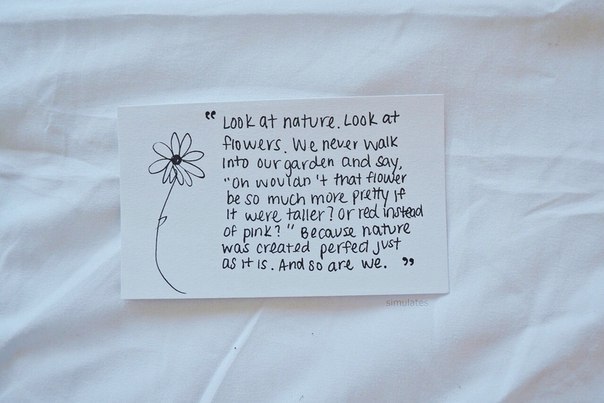 “ Look at nature. Look at
flowers. We never walk
into our garden and say,
"Oh wouldn't that flower
be so much more pretty if
it were taller? Or red instead
of pink?" Because nature
was created perfect just
as it is. And so are we. ”
simulates